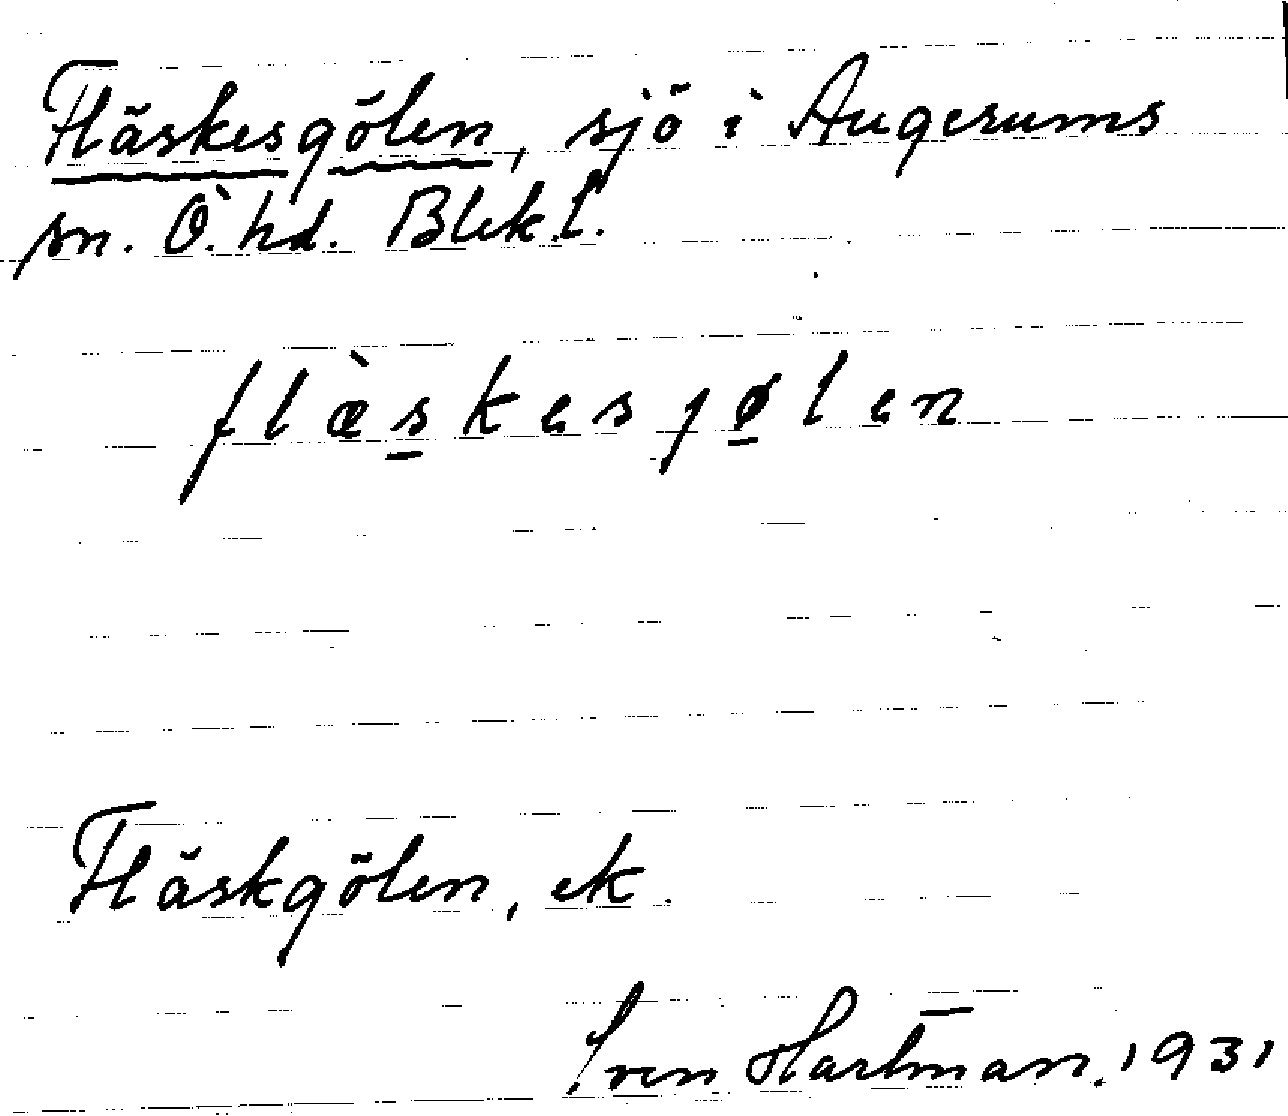 Fläskesgölen, sjö i Augerums
sn. Ö. hd. Blek.l.
flæ̀s̲kesjø̲len
Fläskgölen, ek.
Sven Hartman̄. 1931